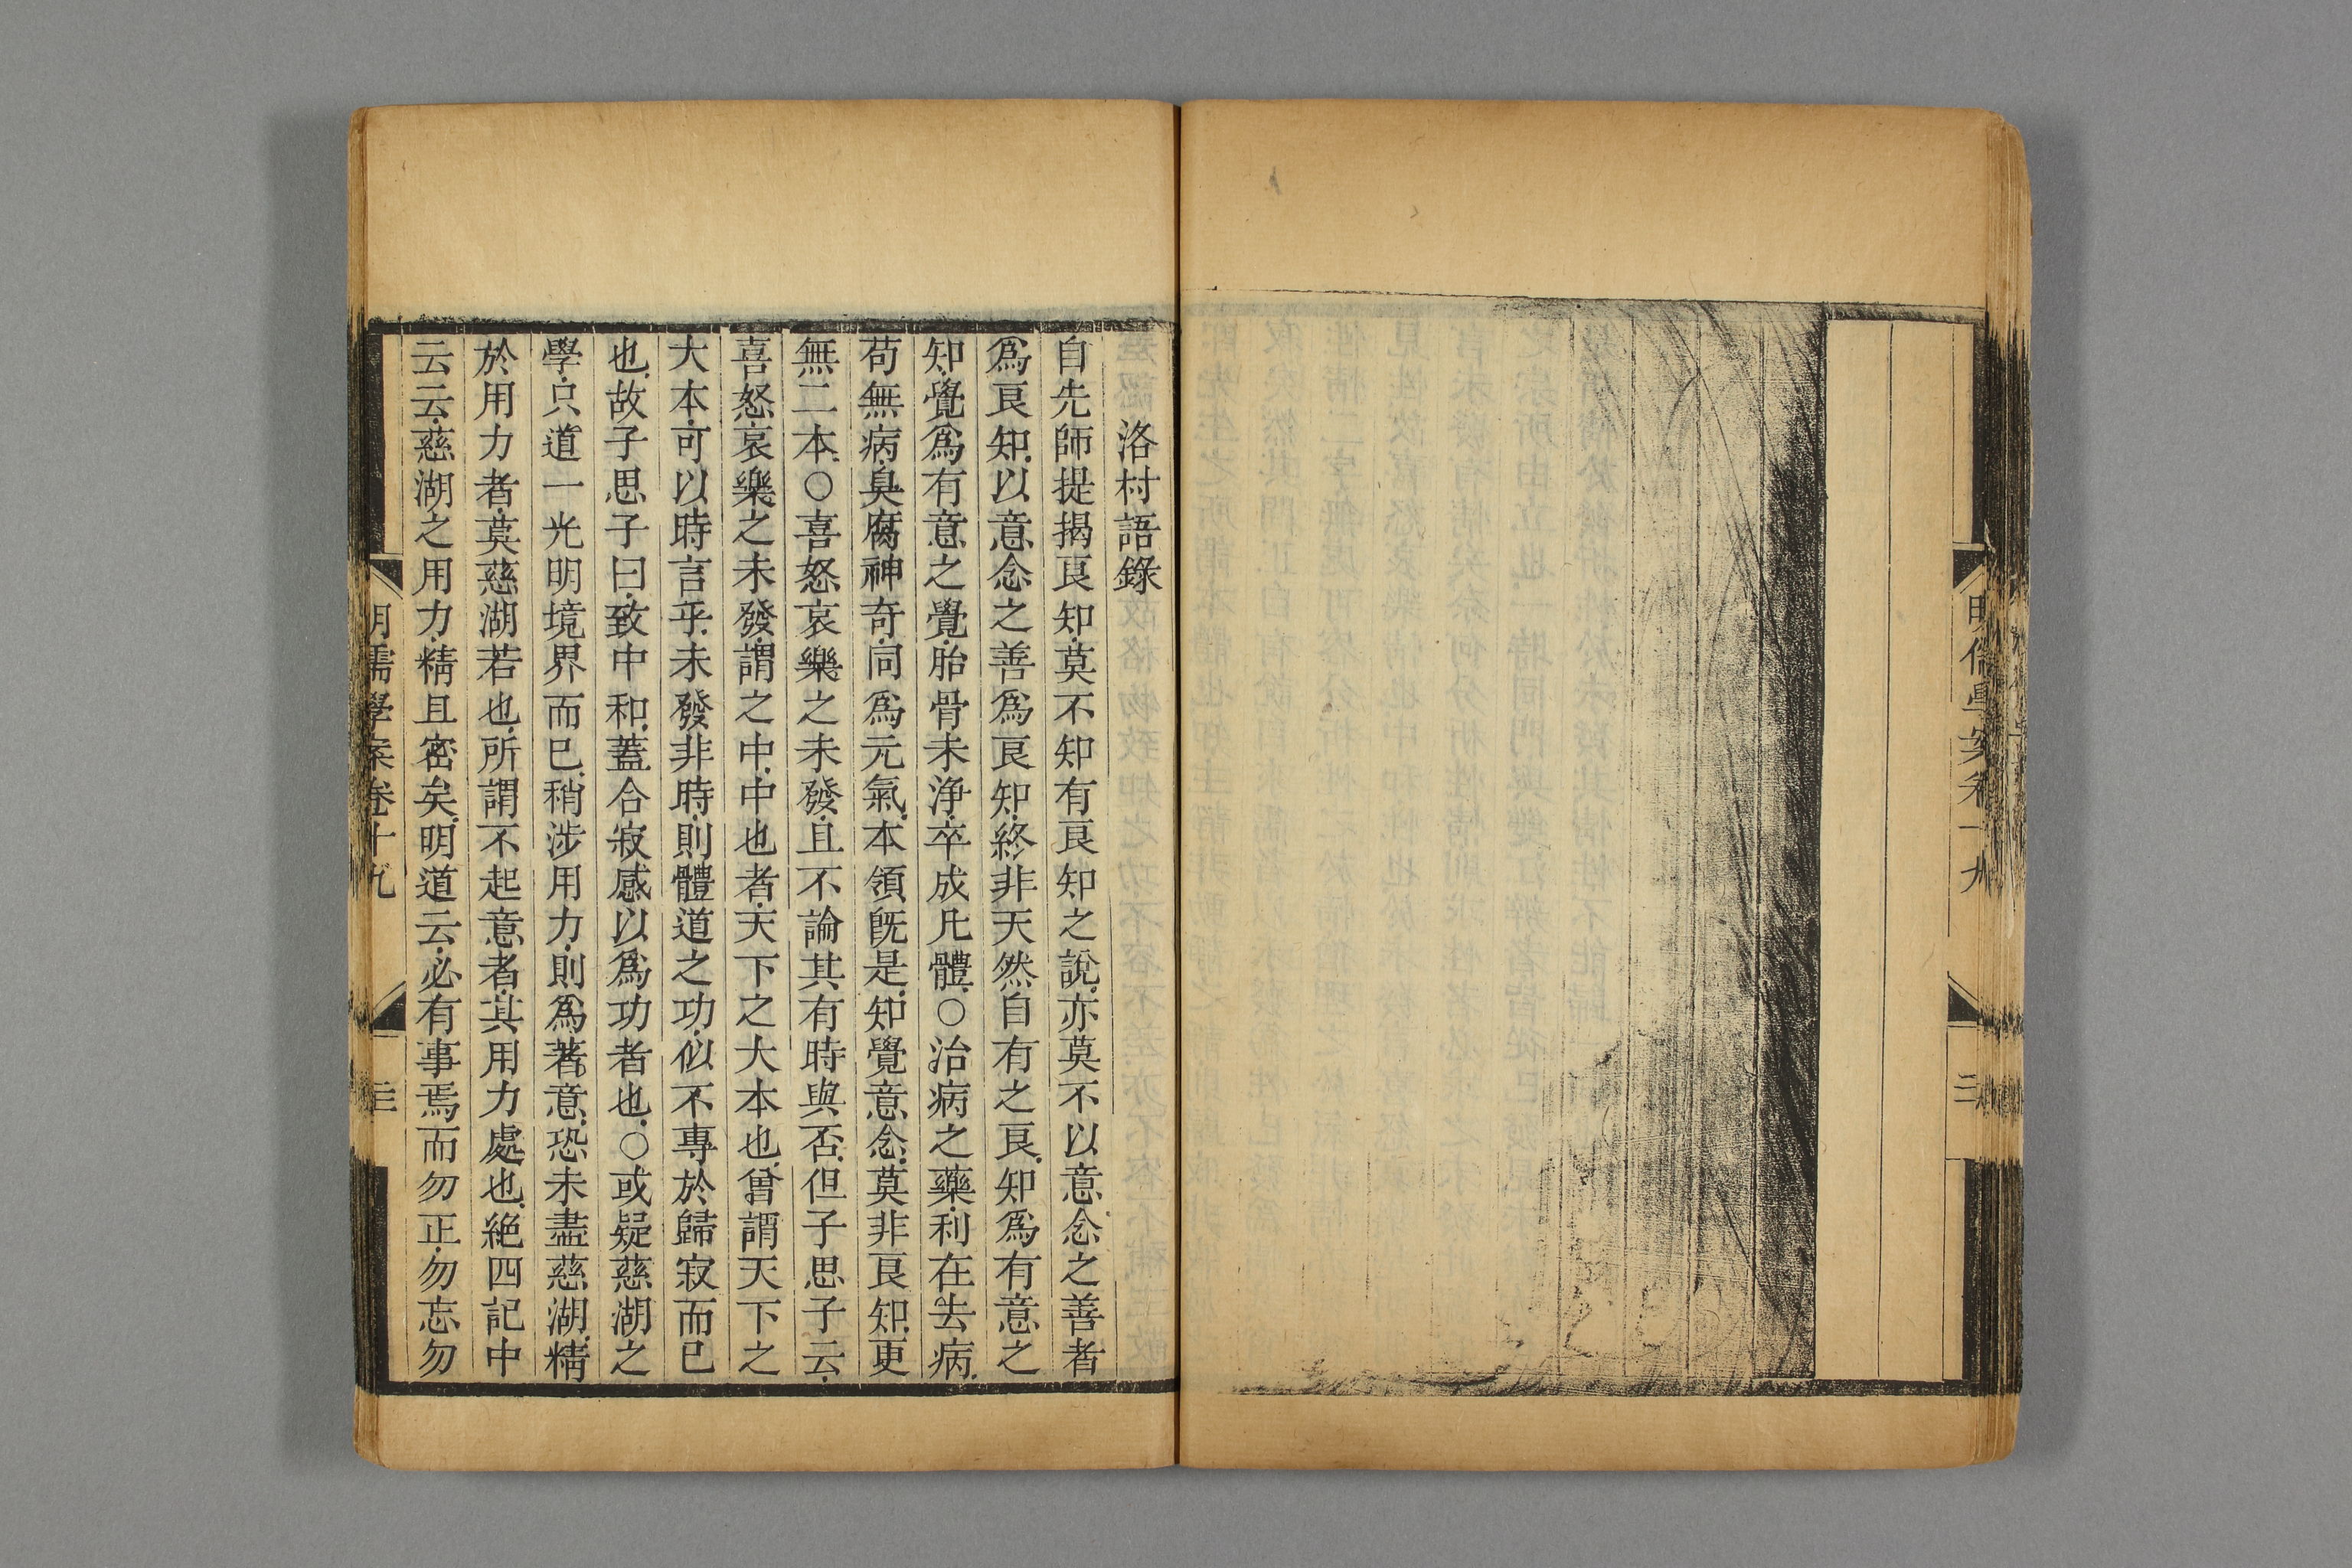 洛村語錄
自先師提揭良知.莫不知有良知之說.亦莫不以意念之善者
爲良知.以意念之善爲良知.終非天然自有之良.知爲有意之
知.覺爲有意之覺.胎骨未淨.卒成凡體.○治病之藥.利在去病.
苟無病.臭腐神奇.同爲元氣.本領既是.知覺意念.莫非良知.更
無二本.○喜怒哀樂之未發.且不論其有時與否.但子思子云.
喜怒哀樂之未發.謂之中.中也者.天下之大本也.曾謂天下之
大本.可以時言乎.未發非時.則體道之功.似不專於歸寂而已
也.故子思子曰.致中和.蓋合寂感以爲功者也.○或疑慈湖之
學.只道一光明境界而已.稍涉用力.則爲著意.恐未盡慈湖.精
於用力者.莫慈湖若也.所謂不起意者.其用力處也.絕四記中
云云.慈湖之用力.精且密矣.明道云.必有事焉.而勿正.勿忘勿
明儒學案卷十九